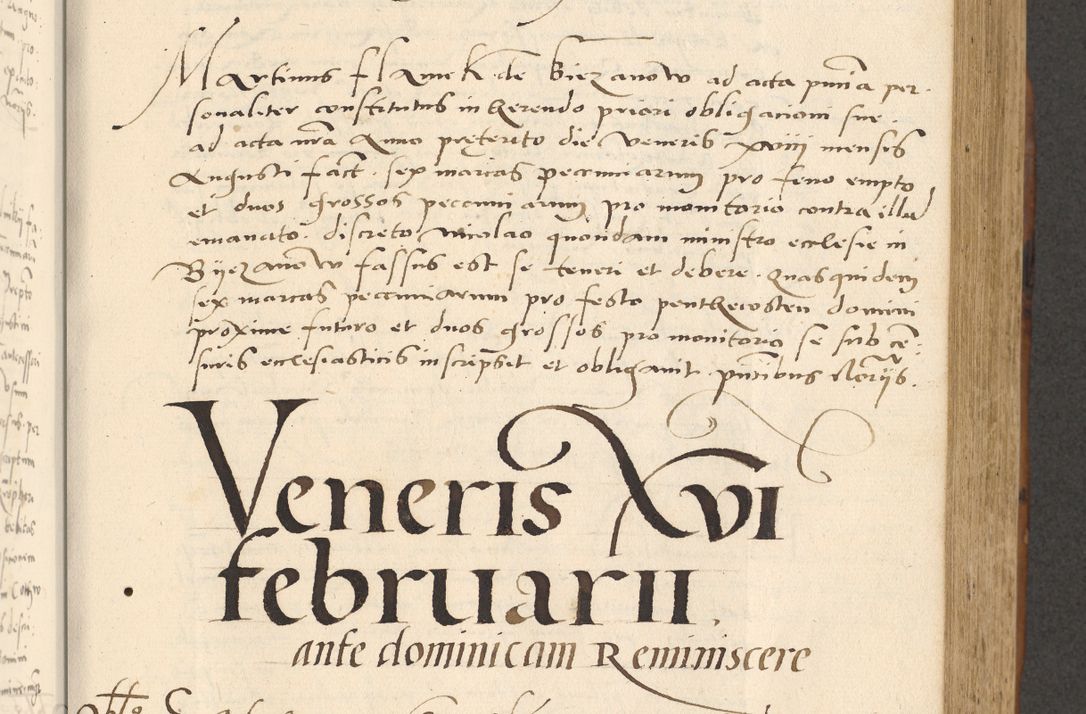 Martinus flamek de Biezanow ad acta pnīa per-
sonaliter constitutus inherendo priori obligacioni sue
ad acta nrā Anno preterito die veneris xviij mensis
Augusti fact. sex marcas pecuniarum pro feno empto
et duos grossos pecuniarum pro monitorio contra illud
emanato. discreto nicolao quondam ministro ecclesie in
Bijezanow fassus est se teneri et debere. quasquidem
sex marcas pecuniarum pro festo penthecosten domini
proxime futuro et duos grossos pro monitorio se sub cē-
suris ecclesiasticis inscripsit et obligavit
Veneris Xvi
februarii.
ante dominicam Reminiscere